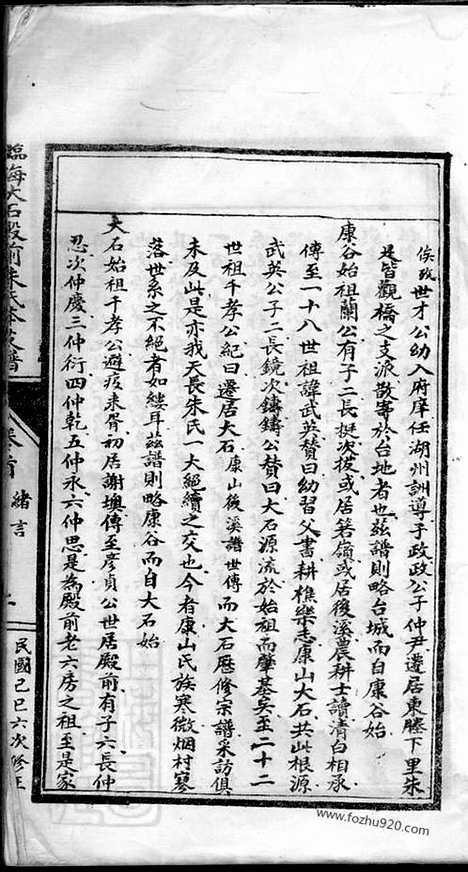 俟攷世才公幼入府庠任湖州訓導子政政公子仲尹遷居東塍下里朱
是皆觀橋之支派散寄於台地者也茲譜則略台城而自康谷始
康谷始祖蘭公有子二長挺次拔或居箬嶺或居後溪農耕士讀清白相承
傳至一十八世祖諱武英贊曰幼習父書耕樵樂志康山大石共此根源
武英公子二長鏡次鑄鑄公贊曰大石源流於始祖而肇基矣至二十二
世祖千孝公紀曰遷居大石康山後溪譜世傳而大石歷修宗譜采訪俱
未及此是亦我天長朱氏一大絕續之交也今者康山氏族寒微烟村寥
落世系之不絕者如縷耳茲譜則略康谷而自大石始
大石始祖千孝公避疫来胥初居謝墺傳至彥貞公世居殿前有子六長仲
忍次仲慶三仲衍四仲乾五仲永六仲思是為殿前老六房之祖至是家
臨海大石殿前朱氏宗譜
卷首
緒言
民國己巳六次修正
www.fozhu920.com